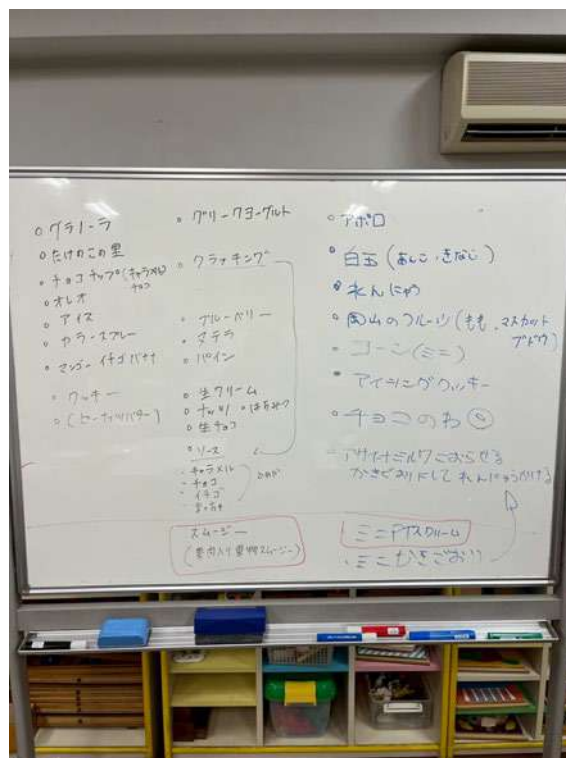 ○グラノーラ
○たけのこの里
○チョコチップ(キャラメル
チョコ
○オレオ
○アイス
○カラースプレー
○マンゴー イチゴ バナナ
○クッキー
○(ピーナッツバター)
○グリークヨーグルト
○クラッチング
○ブルーベリー
○パイン
○生クリーム
○ナッツ ○はちみつ
○生チョコ
○ソース
-キャラメル
-チョコ
-イチゴ
スムージー
(果肉入り果物スムージー)
○アポロ
○白玉(あんこ、きなこ)
○れんにゅう
○岡山のフルーツ(もも、マスカット
ブドウ)
○コーン(ミニ)
○アイシングクッキー
○チョコのわ◎
かきごおりにしてれんにゅうかける
ミニアイスクリーム